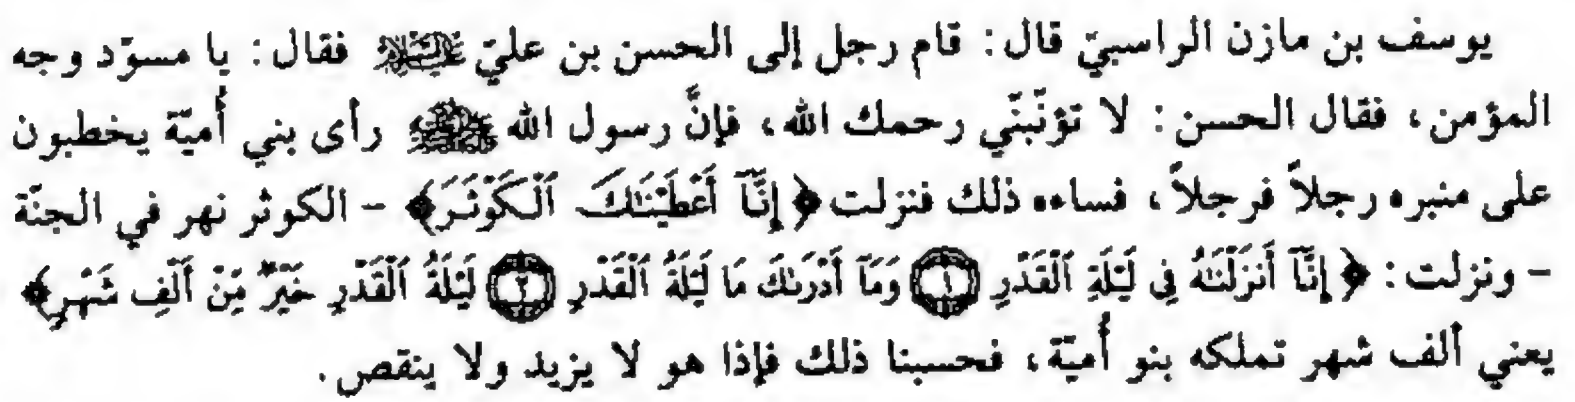 يوسف بن مازن الراسبيّ قال: قام رجل إلى الحسن بن عليّ عليه السلام فقال: يا مسوّد وجه
المؤمن، فقال الحسن: لا تؤنّبنّي رحمك الله، فإنَّ رسول الله ﷺ رأى بني أُميّة يخطبون
على منبره رجلاً فرجلاً، فساءه ذلك فنزلت ﴿إِنَّآ أَعْطَيْنَٰكَ ٱلْكَوْثَرَ﴾ - الكوثر نهر في الجنّة
- ونزلت: ﴿إِنَّآ أَنزَلْنَٰهُ فِى لَيْلَةِ ٱلْقَدْرِ ١ وَمَآ أَدْرَىٰكَ مَا لَيْلَةُ ٱلْقَدْرِ ٢ لَيْلَةُ ٱلْقَدْرِ خَيْرٌ مِّنْ أَلْفِ شَهْرٍ﴾
يعني ألف شهر تملكه بنو أُميّة، فحسبنا ذلك فإذا هو لا يزيد ولا ينقص.